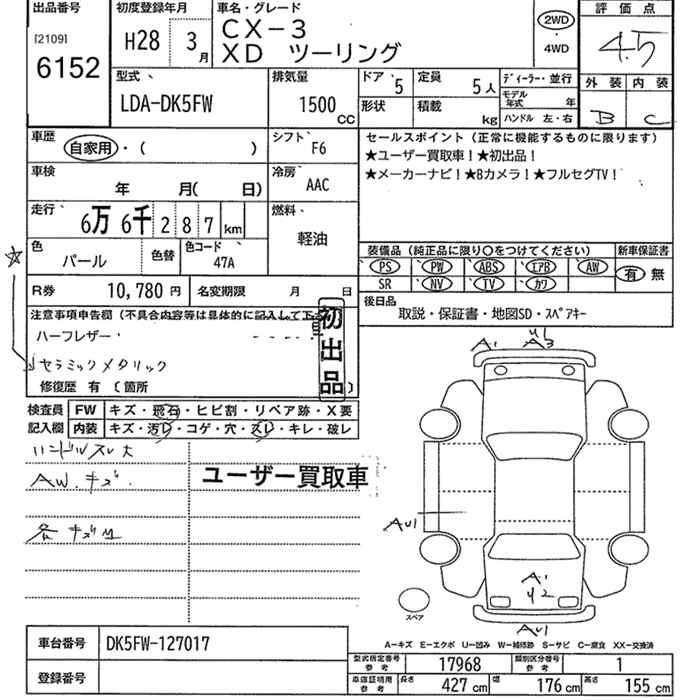 出品番号
[2109]
6152
初度登録年月
H28 3月
車名・グレード
CX-3
XD ツーリング
2WD
・
4WD
評価点
4.5
外装 内装
B C
型式
LDA-DK5FW
排気量
1500 CC
ドア 5
定員 5人
形状
積載 kg
ディーラー・並行
モデル年式 年
ハンドル 左・右
車歴
自家用・( )
シフト F6
セールスポイント(正常に機能するものに限ります)
★ユーザー買取車!★初出品!
★メーカーナビ!★Bカメラ!★フルセグTV!
車検
年 月( 日)
冷房 AAC
走行
6万 6千 2 8 7 km
燃料
軽油
色
パール
色替
色コード
47A
装備品(純正品に限り○をつけてください)
新車保証書
PS PW ABS エアB AW
SR NV TV カワ
有 無
R券 10,780円
名変期限 月 日
後日品
取説・保証書・地図SD・スペアキー
注意事項申告欄(不具合内容等は具体的に記入して下さい)
ハーフレザー・
セラミックメタリック
初出品
修復歴 有 〔箇所 〕
検査員記入欄
FW キズ・飛石・ヒビ割・リペア跡・X要
内装 キズ・汚レ・コゲ・穴・スレ・キレ・破レ
ハンドルスレ大
AW.キズ.
ユーザー買取車
各キズ凹
A1
U1
A3
AU1
A1
U2
AU1
スペア
A―キズ E―エクボ U―凹み W―補修跡 S―サビ C―腐食 XX―交換済
車台番号 DK5FW-127017
登録番号
型式指定番号参考 17968
類別区分番号参考 1
車庫証明用参考
長さ 427cm
幅 176cm
高さ 155cm